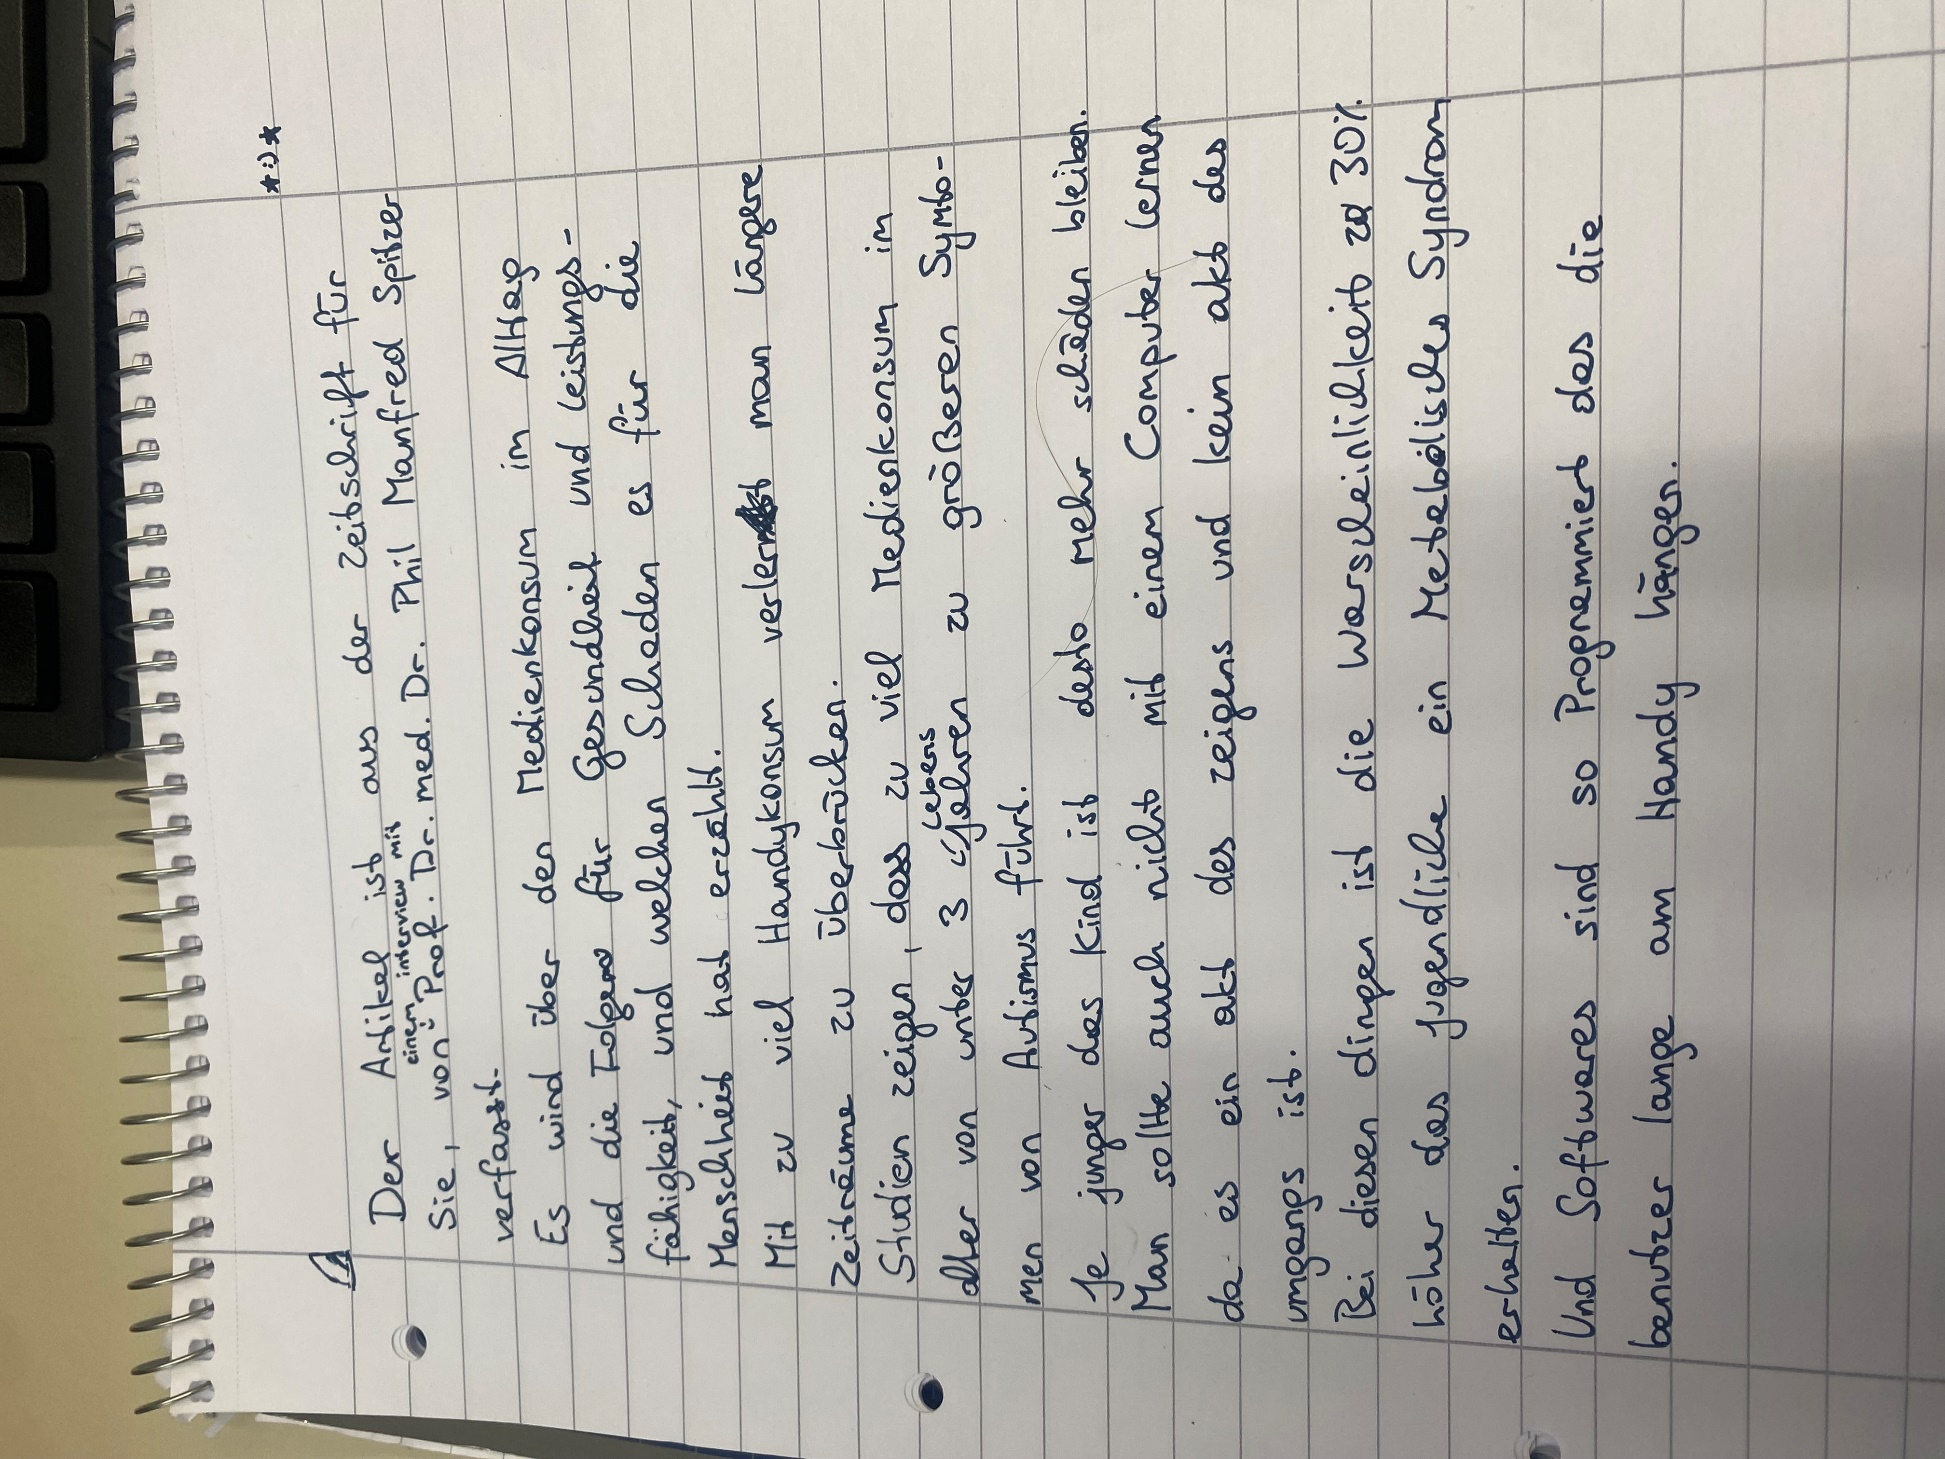 *:)*
Der Artikel ist aus der Zeitschrift für
einem interview mit
Sie, von Prof. Dr. med. Dr. Phil Manfred Spitzer
verfasst.
Es wird über den Medienkonsum im Alltag
und die Folgen für Gesundheit und leistungs-
fähigkeit, und welchen Schaden es für die
Menschheit hat erzählt.
Mit zu viel Handykonsum verlernt man längere
Zeiträume zu überbrücken.
Studien zeigen, dass zu viel Medienkonsum im
Lebens
alter von unter 3 Jahren zu größeren Symto-
men von Autismus führt.
Je junger das Kind ist desto mehr schäden bleiben.
Man sollte auch nicht mit einem Computer lernen
da es ein akt des zeigens und kein akt des
umgangs ist.
Bei diesen dingen ist die Warscheinlichkeit zu 30%
höher das jugendliche ein Metabolisches Syndrom
erhalten.
Und Softwares sind so Programmiert das die
benutzer lange am Handy hängen.